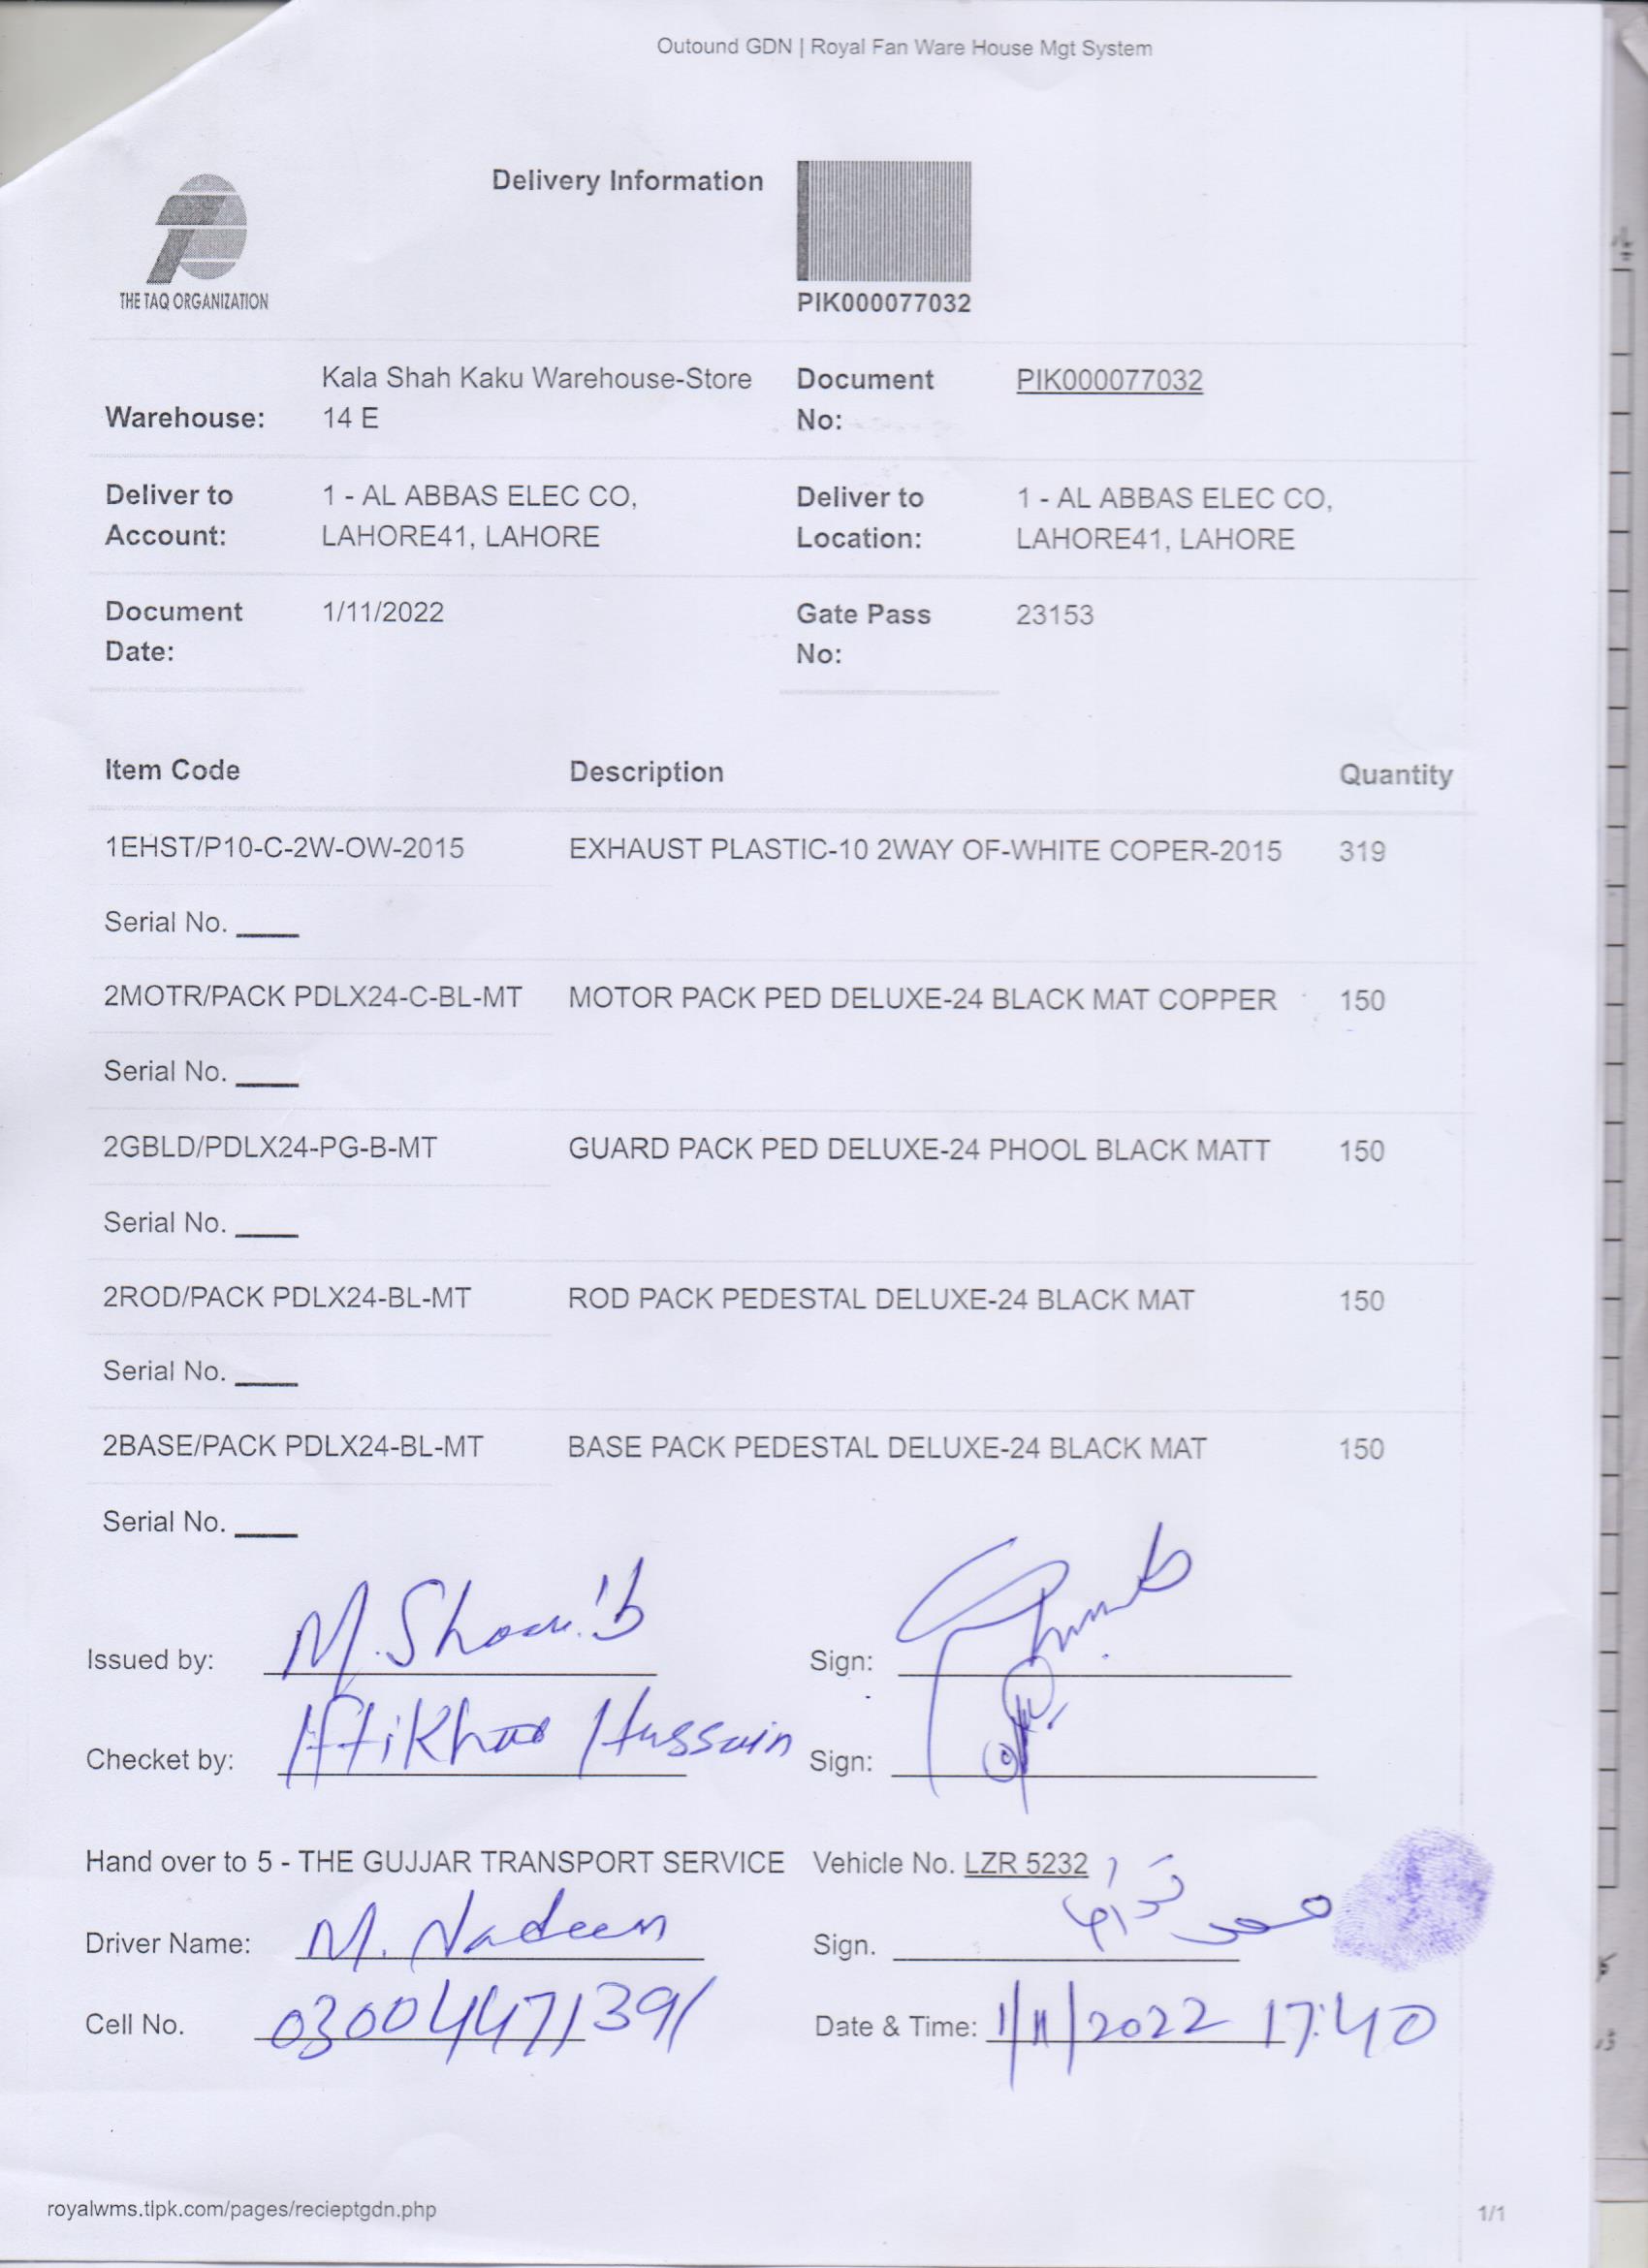 Outound GDN | Royal Fan Ware House Mgt System
Delivery Information
THE TAQ ORGANIZATION
PIK000077032
Warehouse: Kala Shah Kaku Warehouse-Store 14 E
Document No: PIK000077032
Deliver to Account: 1 - AL ABBAS ELEC CO, LAHORE41, LAHORE
Deliver to Location: 1 - AL ABBAS ELEC CO, LAHORE41, LAHORE
Document Date: 1/11/2022
Gate Pass No: 23153
Item Code Description Quantity
1EHST/P10-C-2W-OW-2015 EXHAUST PLASTIC-10 2WAY OF-WHITE COPER-2015 319
Serial No. ____
2MOTR/PACK PDLX24-C-BL-MT MOTOR PACK PED DELUXE-24 BLACK MAT COPPER 150
Serial No. ____
2GBLD/PDLX24-PG-B-MT GUARD PACK PED DELUXE-24 PHOOL BLACK MATT 150
Serial No. ____
2ROD/PACK PDLX24-BL-MT ROD PACK PEDESTAL DELUXE-24 BLACK MAT 150
Serial No. ____
2BASE/PACK PDLX24-BL-MT BASE PACK PEDESTAL DELUXE-24 BLACK MAT 150
Serial No. ____
Issued by: M. Shoaib Sign:
Checket by: Iftikhar Hussain Sign:
Hand over to 5 - THE GUJJAR TRANSPORT SERVICE Vehicle No. LZR 5232
Driver Name: M. Nadeem Sign. محمد ندیم
Cell No. 03004471391 Date & Time: 1/11/2022 17:40
royalwms.tlpk.com/pages/recieptgdn.php 1/1